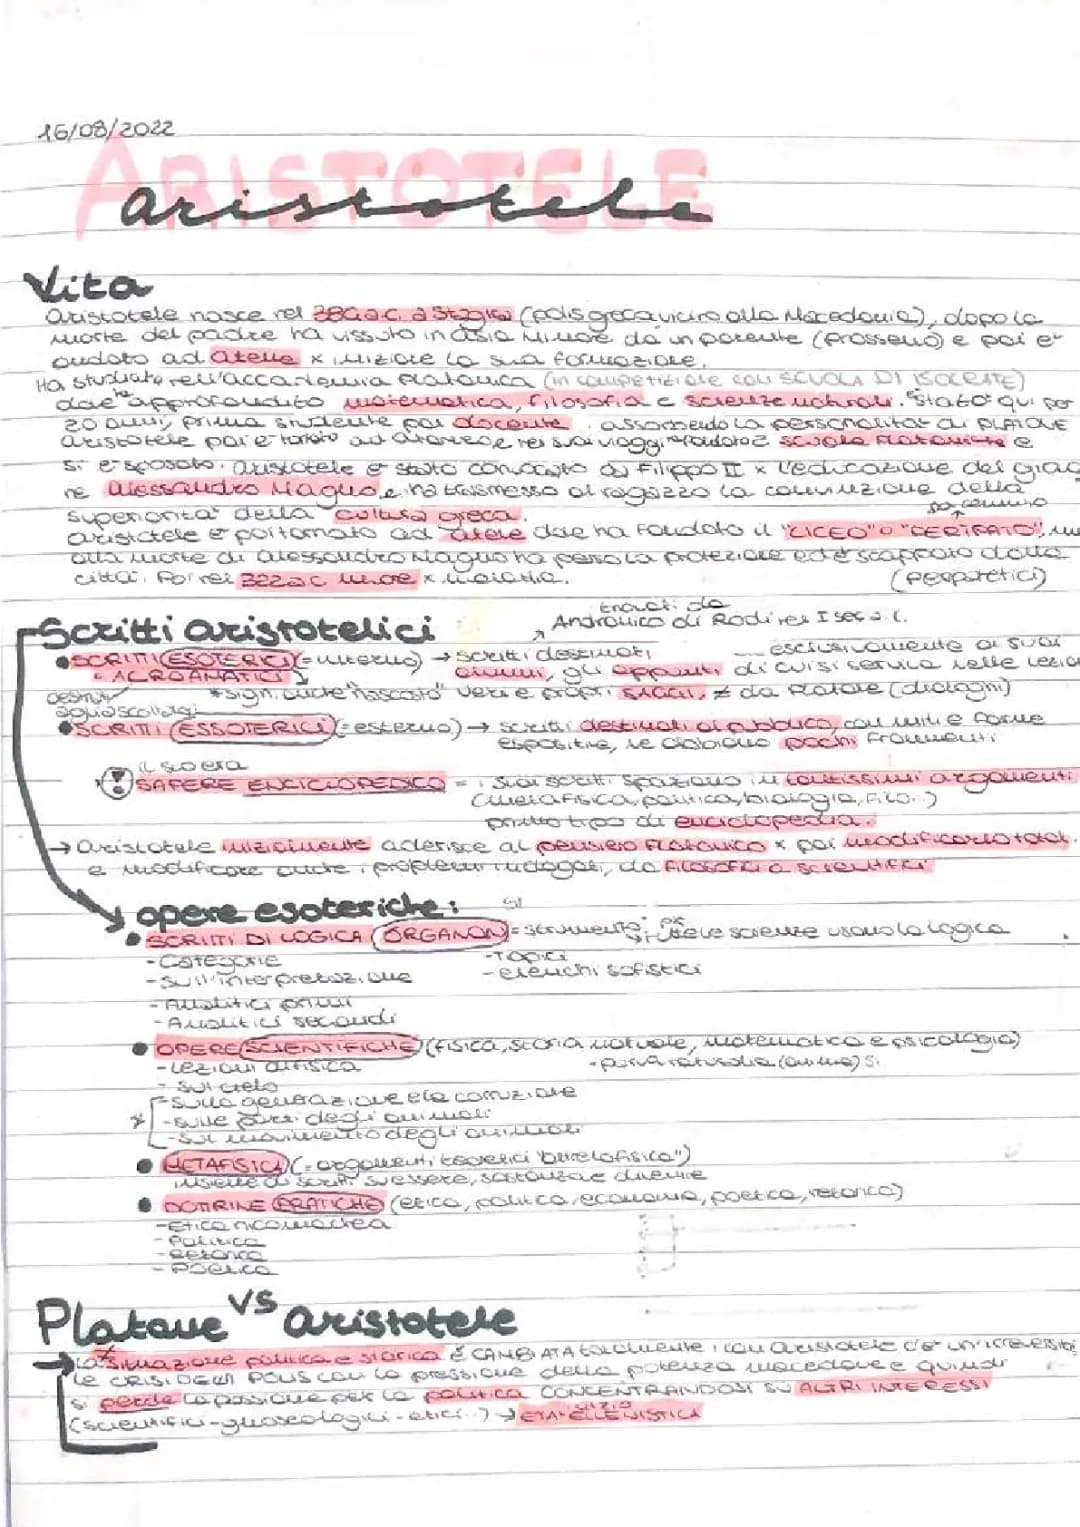 16/08/2022
ARISTOTELE
aristotele
Vita
Aristotele nasce nel a Stagira (polis greca vicino alla Macedonia), dopo la
morte del padre ha vissuto in Asia Minore da un parente (Prosseno) e poi e'
andato ad Atene x iniziare la sua formazione.
Ha studiato nell'accademia Platonica (in competizione con SCUOLA DI ISOCRATE)
dove ha approfondito matematica, filosofia e scienze naturali. E' stato qui per
20 anni, prima studente poi docente. assorbendo la personalita' di PLATONE
aristotele poi e' tornato ad e nei suoi viaggi ha fondato 2 scuole Platoniche e
si e' sposato. Aristotele e' stato convocato da Filippo II x l'educazione del giova
ne Alessandro Magno e ha trasmesso al ragazzo la convinzione della
superiorita' della cultura greca.
passeggio
aristotele e' poi tornato ad Atene dove ha fondato il "LICEO" o "PERIPATO", ma
alla morte di Alessandro Magno ha perso la protezione ed è scappato dalla
città. Poi nel 322 a.C muore x malattia.
(peripatetici)
Scritti aristotelici
trovati da
Andronico di Rodi nel I sec a.C.
SCRITTI ESOTERICI (= interno) → scritti destinati esclusivamente ai suoi
• ACROAMATICI
alunni, gli appunti di cui si serviva nelle lezion
destinati
agli ascoltatori
*sign. anche "nascosto" veri e propri saggi, ≠ da Platone (dialoghi)
SCRITTI ESSOTERICI (= esterno) → scritti destinati al pubblico, con miti e forme
espositive, ne abbiamo pochi frammenti
il suo era
SAPERE ENCICLOPEDICO = i suoi scritti spaziano in tantissimi argomenti
(metafisica, politica, biologia, filo...)
primo tipo di enciclopedia.
→ Aristotele inizialmente aderisce al pensiero Platonico x poi modificarlo total.
e modificare anche i problemi indagati, da filosofici a scientifici
opere esoteriche:
• SCRITTI DI LOGICA (ORGANON) = strumento; le scienze usano la logica
- Categorie
- Topici
- Sull'interpretazione
- elenchi sofistici
- Analitici primi
- Analitici secondi
• OPERE SCIENTIFICHE (fisica, storia naturale, matematica e psicologia)
- Lezioni di fisica
- parva naturalia (anima)
- Sul cielo
- Sulla generazione e la corruzione
* - Sulle parti degli animali
- Sul movimento degli animali
• METAFISICA (= argomenti teoretici "oltre la fisica")
insieme di scritti su essere, sostanza e divenire
• DOTTRINE PRATICHE (etica, politica, economia, poetica, retorica)
- Etica nicomachea
- Politica
- Retorica
- Poetica
Platone vs aristotele
→ La situazione politica e storica È CAMBIATA totalmente, con Aristotele c'e' un'irreversibi
le CRISI DELLA POLIS con la pressione della potenza macedone e quindi
si perde la passione per la politica CONCENTRANDOSI SU ALTRI INTERESSI
(scientifici-gnoseologici-etici..) → inizio ETA' ELLENISTICA